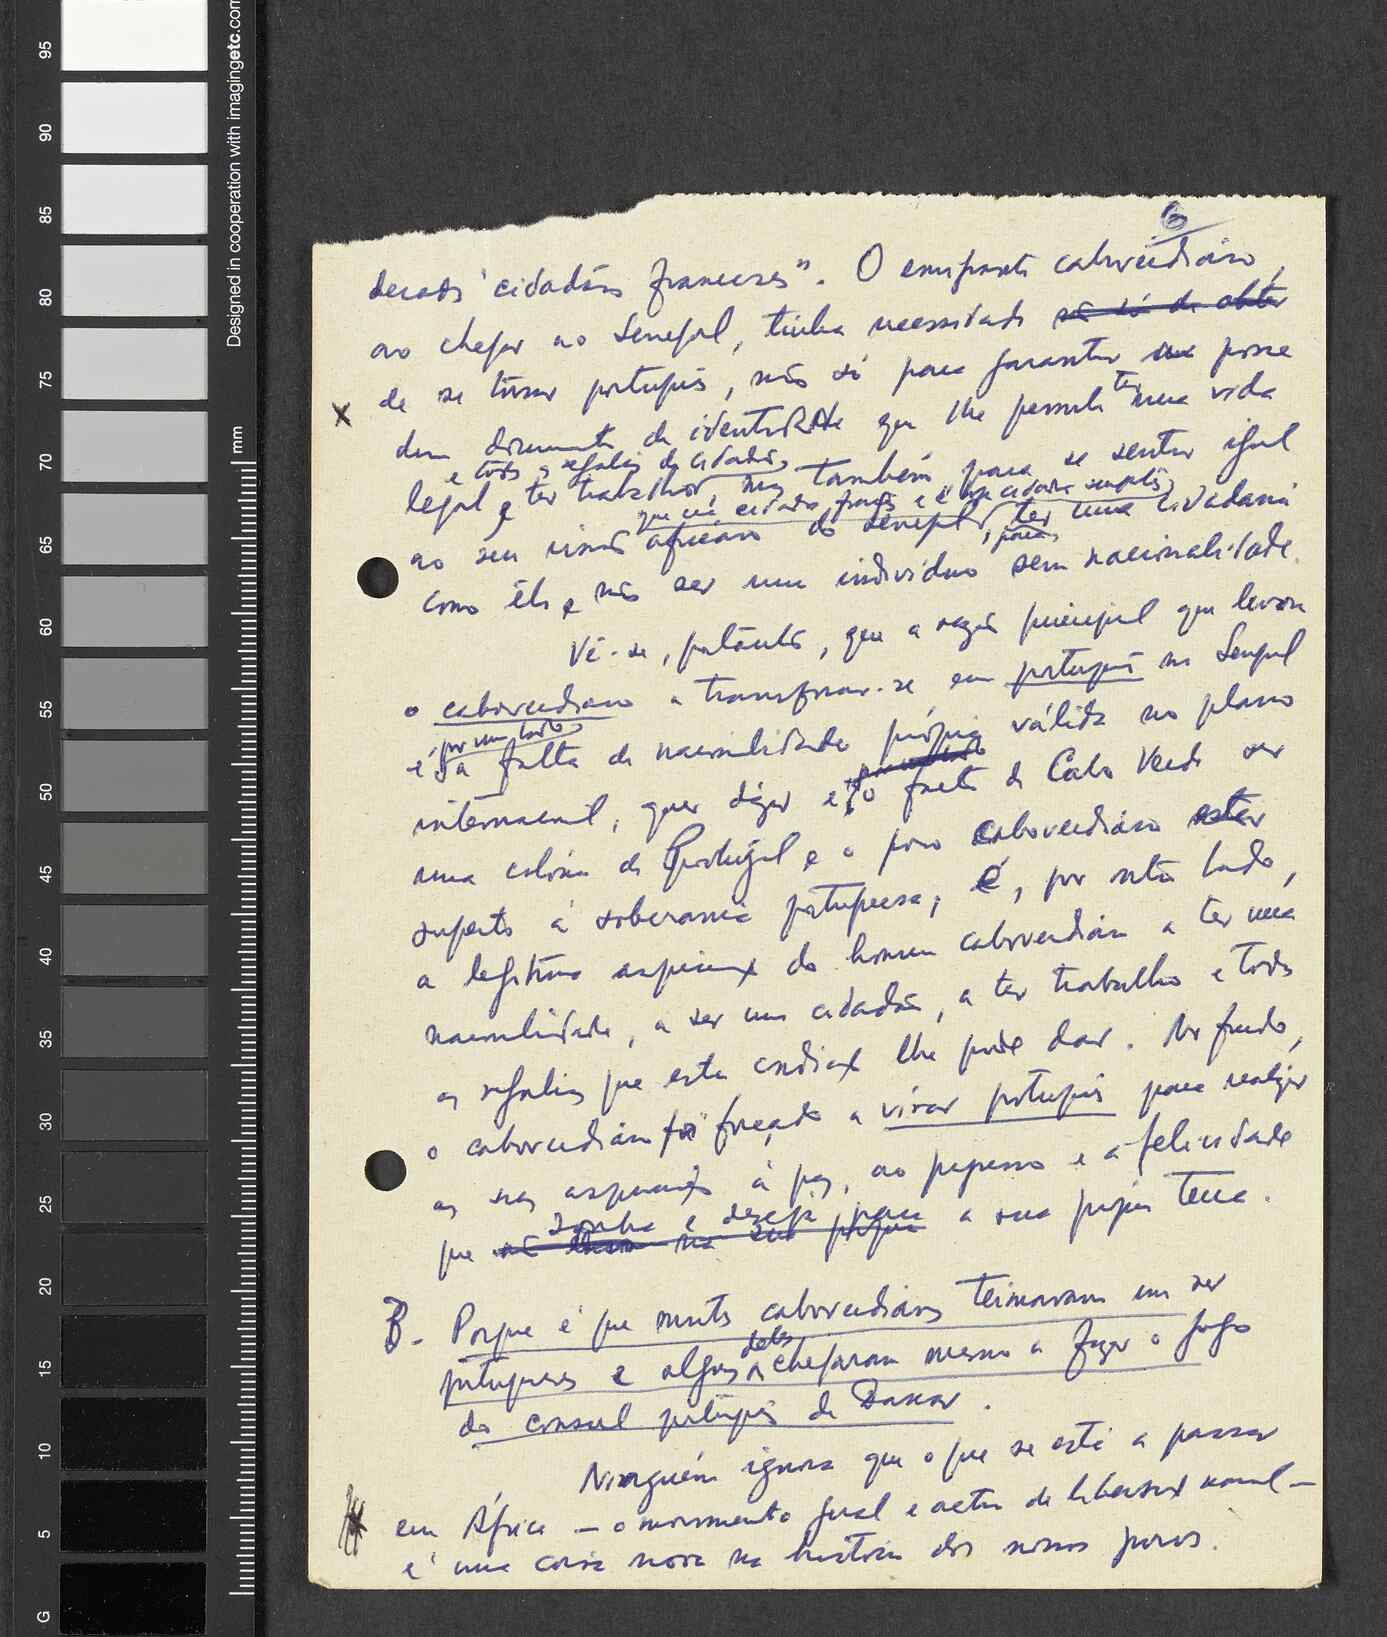 6
derados "cidadãos franceses". O emigrante caboverdiano,
ao chegar ao Senegal, tinha necessidade não só de obter
de se tornar português, não só para garantir a posse
dum documento de identidade que lhe permita ter uma vida
e todas as regalias de cidadão,
legal e ter trabalho, mas também para se sentir igual
que é cidadão francês e é hoje cidadão senegalês,
ao seu irmão africano do Senegal, para ter uma cidadania
como êle e não ser um indivíduo sem nacionalidade.
Vê-se, portanto, que a razão principal que levou
o caboverdiano a transformar-se em português no Senegal
por um lado
é a falta de nacionalidade própria válida no plano
internacional, quer dizer o facto de Cabo Verde ser
uma colónia de Portugal e o povo caboverdiano estar
sujeito à soberania portuguesa; é, por outro lado,
a legítima aspiração do homem caboverdiano a ter uma
nacionalidade, a ser um cidadão, a ter trabalho e todas
as regalias que esta condição lhe pode dar. No fundo,
o caboverdiano foi forçado a virar português para realizar
as suas aspirações à paz, ao progresso e à felicidade
sonha e deseja para
que na sua própria a sua própria terra.
B. Porque é que muitos caboverdianos teimavam em ser
portugueses e alguns deles chegaram mesmo a fazer o jogo
do consul português de Dakar.
Ninguém ignora que o que se está a passar
em África — o movimento geral e actual de libertação nacional —
é uma coisa nova na história dos nossos povos.
95
90
85
80
75
70
65
60
55
50
45
40
35
30
25
20
15
10
5
G
mm
Designed in cooperation with imagingetc.com